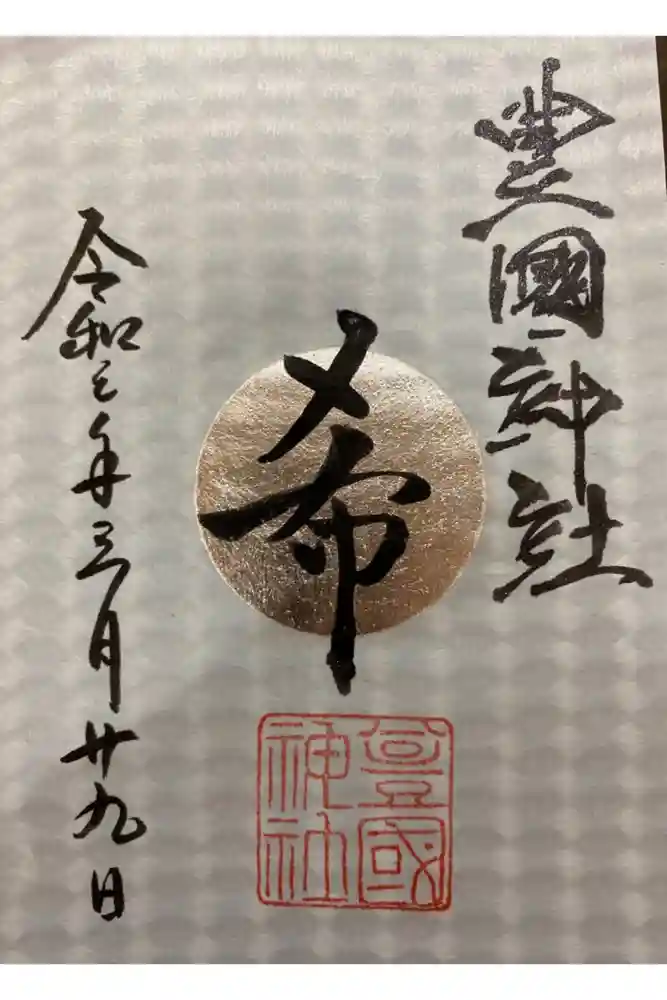 豊國神社
希
令和三年三月廿九日
豊國
神社